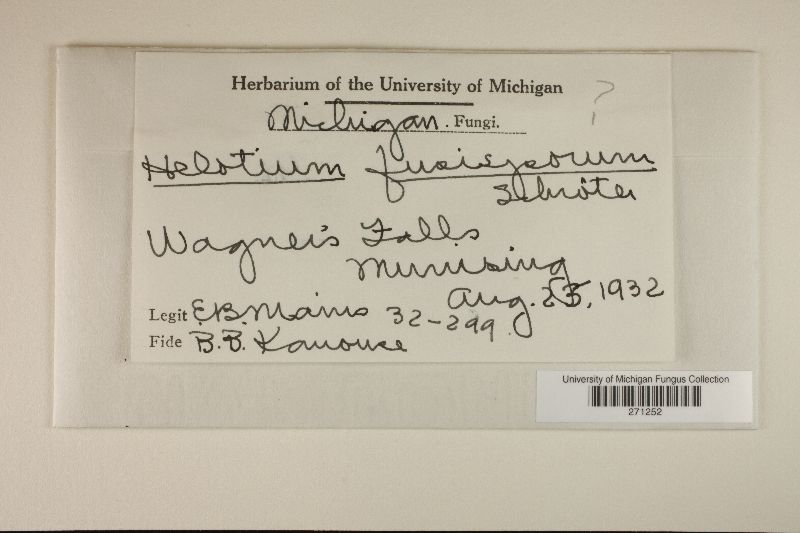 Herbarium of the University of Michigan
?
Michigan. Fungi.
Helotium fusisporum
Schröter
Wagner's Falls
Munising
Aug. 25, 1932
Legit E.B. Mains 32-299.
Fide B.B. Kanouse
University of Michigan Fungus Collection
271252